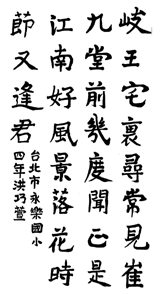 岐王宅裏尋常見崔
九堂前幾慶聞正是
江南好風景落花時
節又逢君
台北市永樂國小
四年洪巧萱